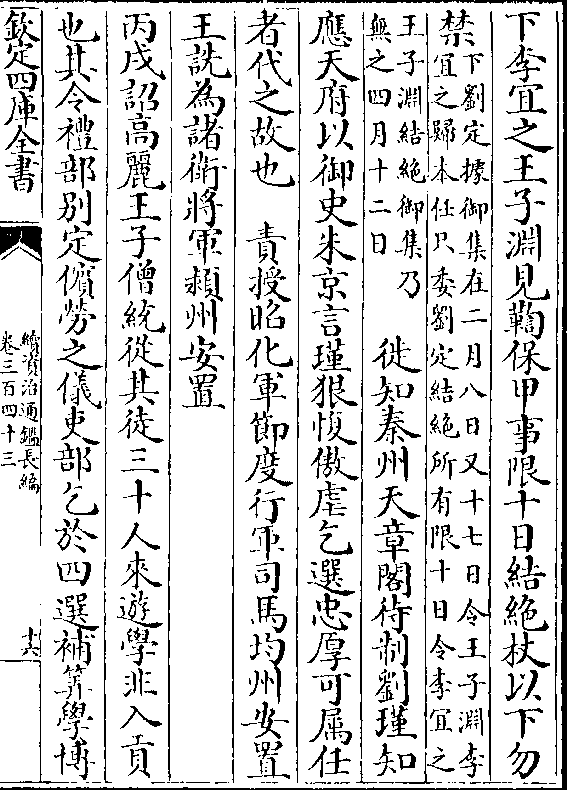 下李宜之王子淵見鞫保甲事限十日結絶杖以下勿
禁下劉定據御集在二月八日又十七日令王子淵李
宜之歸本任只委劉定結絶所有限十日令李宜之
王子淵結絶御集乃
無之四月十二日
徙知秦州天章閣待制劉瑾知
應天府以御史朱京言瑾狠愎傲虐乞選忠厚可属任
者代之故也 責授昭化軍節度行軍司馬均州安置
王詵為諸衛將軍潁州安置
丙戌詔高麗王子僧統從其徒三十人來遊學非入貢
也其令禮部别定儐勞之儀吏部乞於四選補筭學博
欽定四庫全書
續資治通鑑長編
卷三百四十三
十六